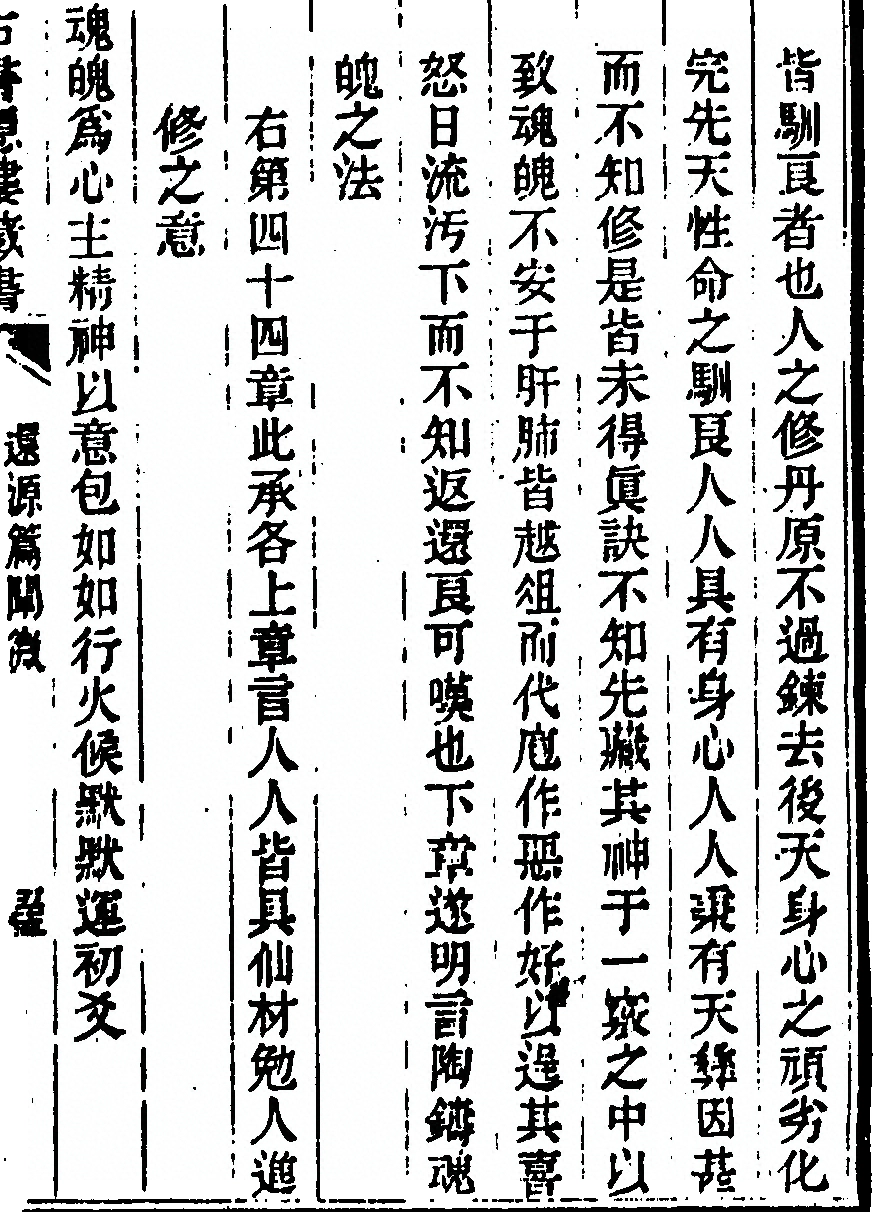 皆馴良者也人之修丹原不過鍊去後天身心之頑劣化
完先天性命之馴良人人具有身心人人稟有天彞因甚
而不知修是皆未得眞訣不知先藏其神于一竅之中以
致魂魄不安于肝肺皆越俎而代庖作惡作好以逞其喜
怒日流汚下而不知返還良可嘆也下章遂明言陶鑄魂
魄之法
右第四十四章此承各上章言人人皆具仙材勉人進
修之意
魂魄爲心主精神以意包如如行火候默默運初爻
古書隱樓藏書
還源篇闡微